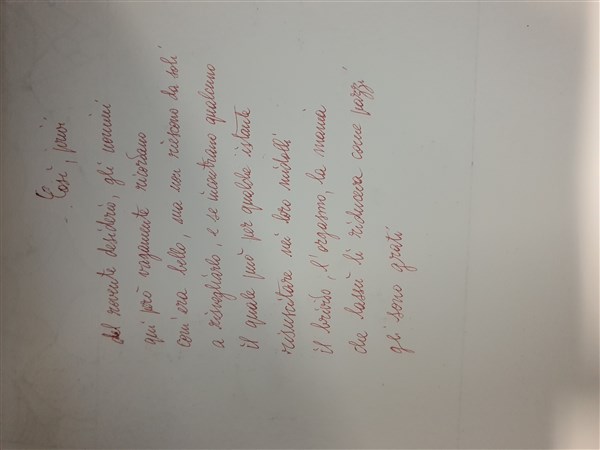 Così, privi
del rovente desiderio, gli uomini
qui però vagamente ricordano
com'era bello, ma non riescono da soli
a risvegliarlo, e se incontrano qualcuno
il quale può per qualche istante
risuscitare nei loro midolli
il brivido, l'orgasmo, la mania
che lassù li riduceva come pazzi
gli sono grati